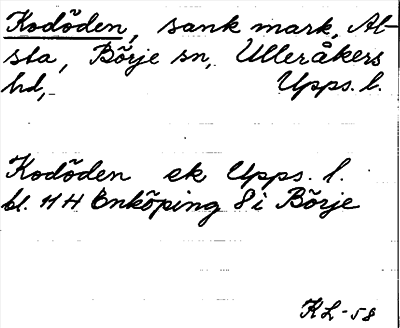 Kodöden, sank mark, Al-
sta, Börje sn, Ulleråkers
hd, Upps. l.
Kodöden ek Upps. l.
bl. 11 H Enköping 8 i Börje
KL-58